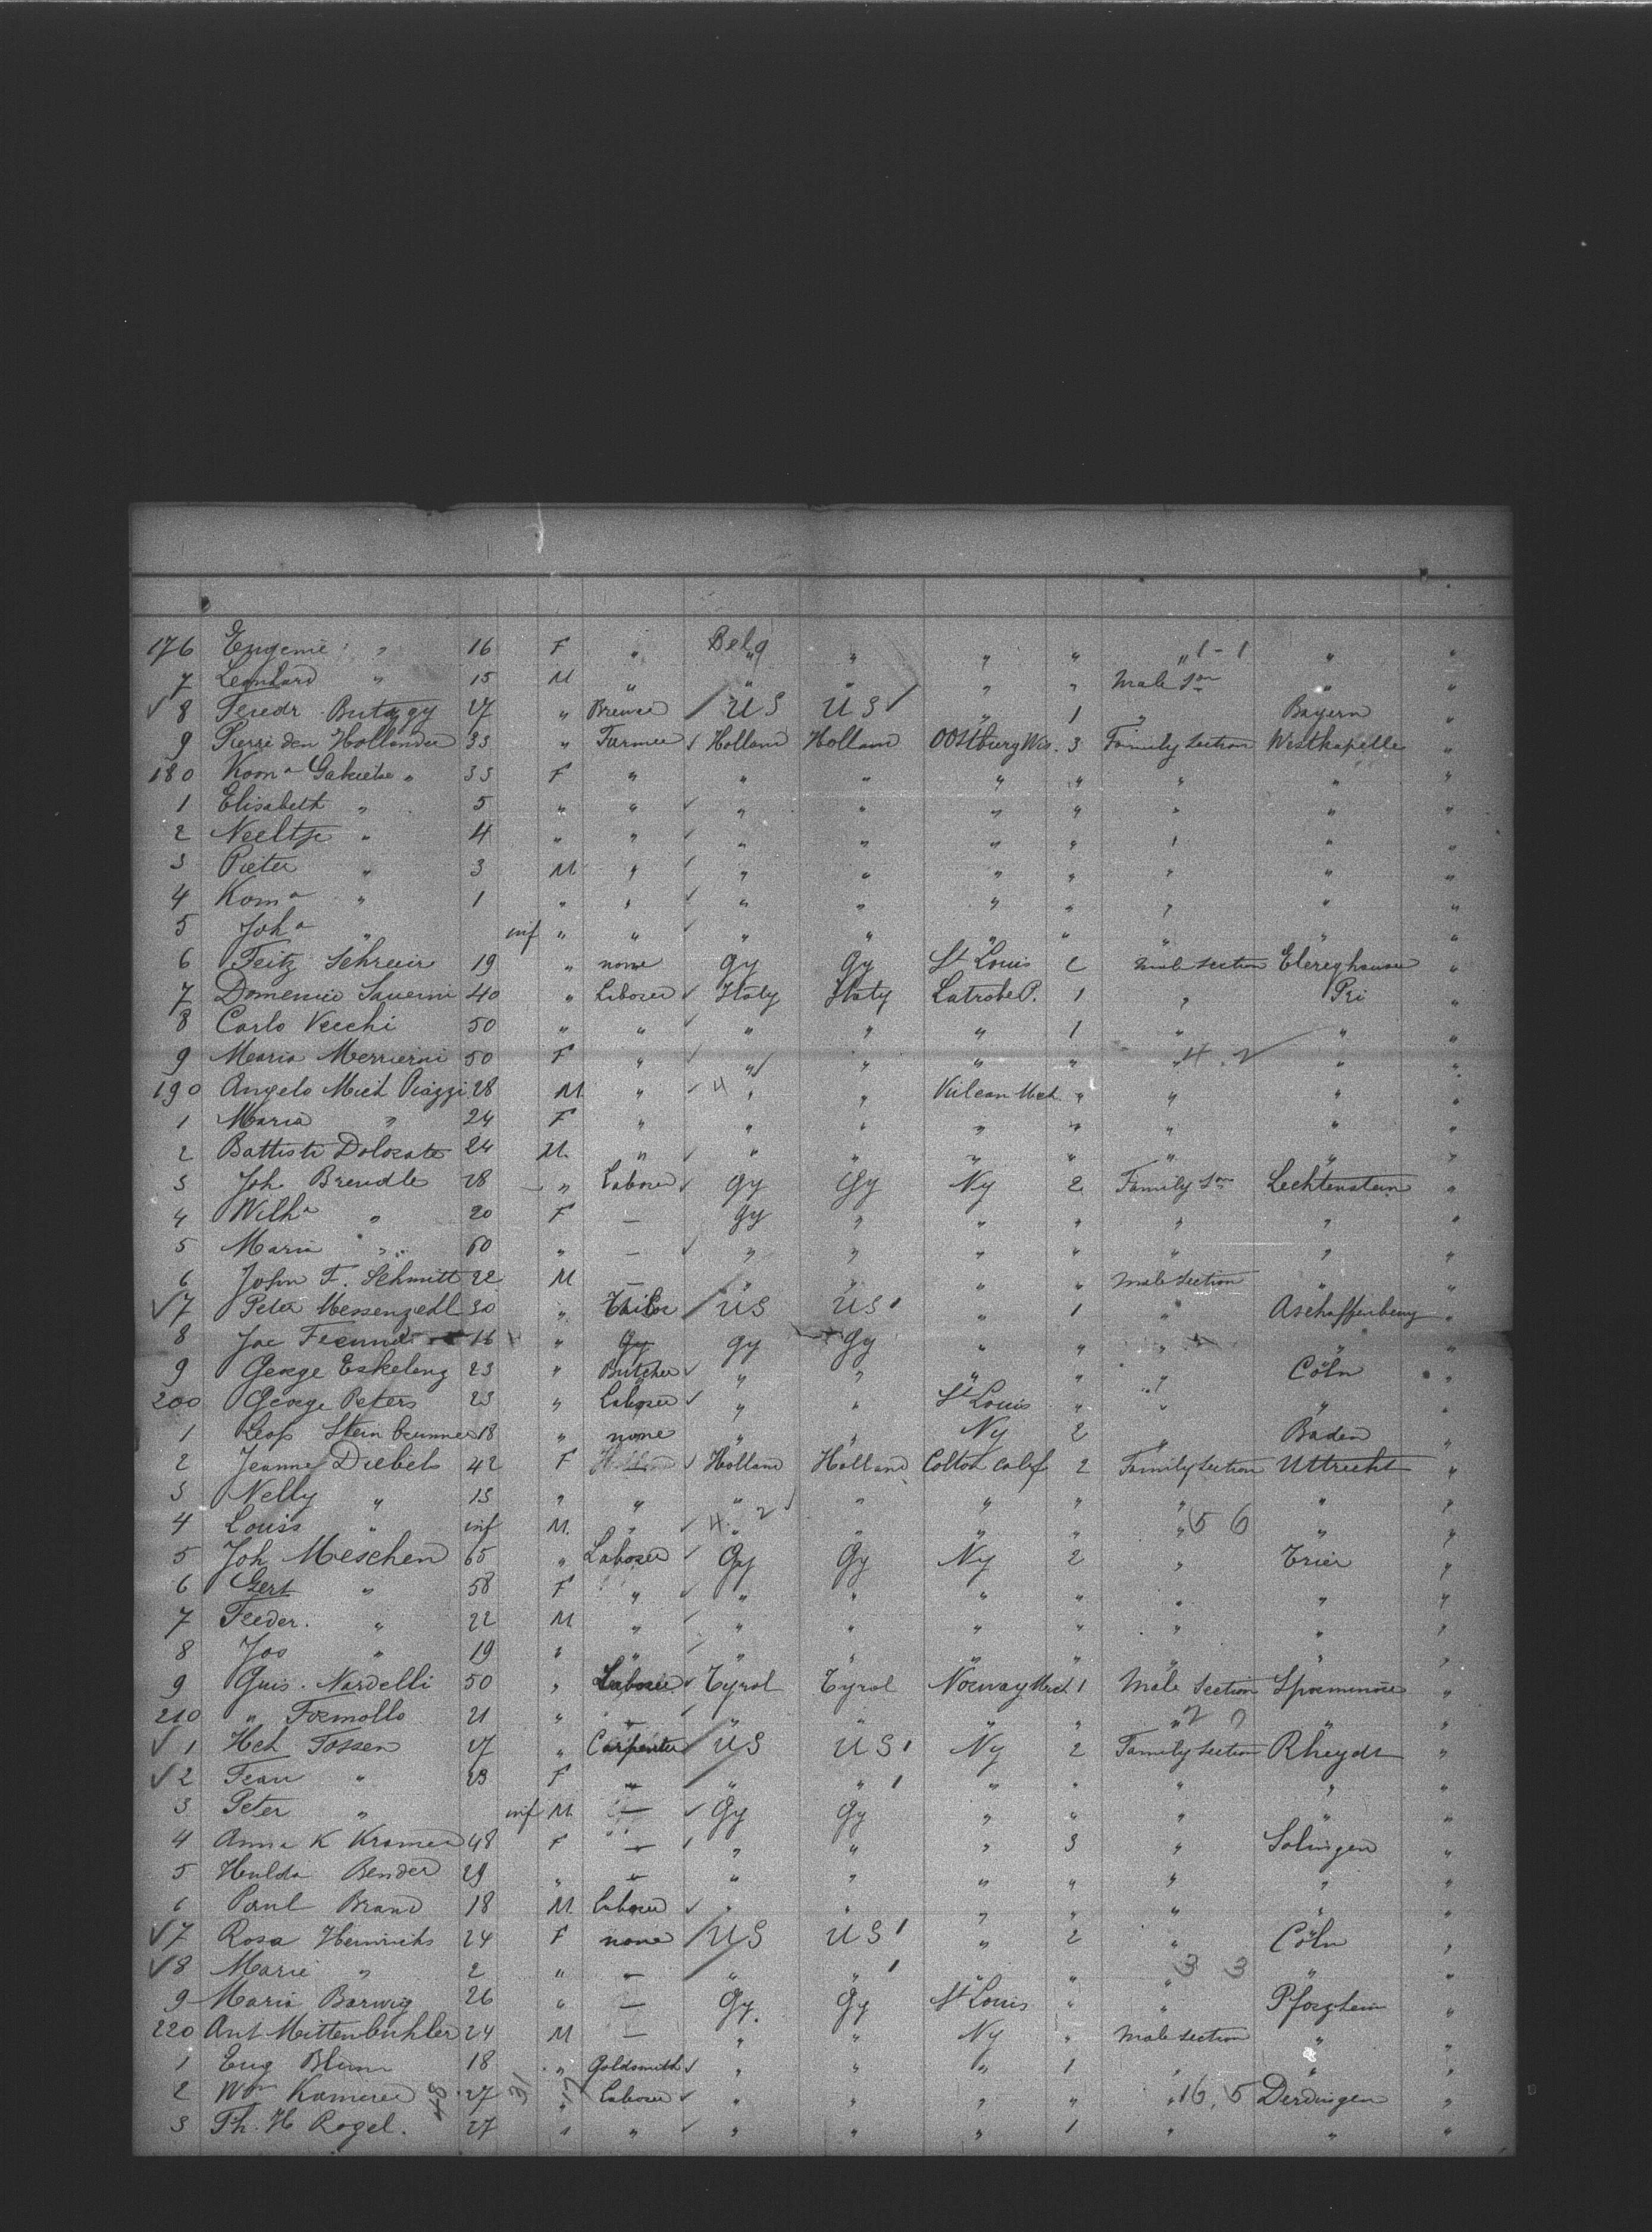 176 Eugenie " 16 F " Belg " " " " 1-1 " "
7 Leonhard " 15 M " " " " " Male Son " "
✓ 8 Friedr Butzgy 27 " Brewer / US US / " 1 " Bayern "
9 Pierre den Hollander 33 " Farmer ✓ Holland Holland Oostburg Wis. 3 Family Section Westkapelle "
180 Korna " 33 F " " " " " " " "
1 Elisabeth " 5 " " ✓ " " " " " " "
2 Neeltje " 4 " " ✓ " " " " " " "
3 Pieter " 3 M " ✓ " " " " " " "
4 Korna " 1 " " ✓ " " " " " " "
5 Joha " inf " " ✓ " " " " " " "
6 Fritz Schreir 19 " none Gy Gy St Louis 2 Male section "
7 Domenico 40 " Laborer ✓ Italy Italy Latrobe P. 1 " "
8 Carlo Vecchi 50 " " ✓ " " " 1 " " "
9 Maria 50 F " ✓ " " " " " 4.2 " "
190 Angelo Mich Piazzi 28 M " ✓ 4 " " Vulcan Mich. " " " "
1 Maria " 24 F " " " " " " " "
2 Battista 24 M. " ✓ " " " " " " "
3 Joh. Brendle 28 " Laborer ✓ Gy Gy Ny 2 Family Son Lechtenstein "
4 Wilha " 20 F — Gy " " " " " "
5 Maria " 60 " — ✓ " " " " " " "
6 John F. Schmitt 22 M — " " " " Male Section " "
✓ 7 Peter Messenzedl 30 " Tailor / US US / " 1 " Aschaffenberg "
8 Joe Freund 16 " Gy Gy Gy " " " " "
9 George Eskeleng 23 " Butcher ✓ " " " " " Cöln "
200 George Peters 23 " Laborer ✓ " " St Louis " " " "
1 Leop Steinbrunner 18 " none " " Ny 2 " Baden "
2 Jeanne Diebels 42 F — ✓ Holland Holland Colton Calif 2 Family Section Uttrecht "
3 Nelly " 13 " " " " " " " " "
4 Louis " inf M. " ✓ 4. 2 " " " " 5 6 " "
5 Joh Meschen 65 " Laborer ✓ Gy Gy Ny 2 " Trier "
6 Gert " 58 F " ✓ " " " " " " "
7 Freder. " 22 M " ✓ " " " " " " "
8 Jos " 19 " " ✓ " " " " " " "
9 Guis. Nardelli 50 " Laborer ✓ Tyrol Tyrol Norway Mich 1 Male Section "
210 " Formollo 21 " — ✓ " " " " " 2 " "
✓ 1 Hch Tossen 27 " Carpenter / US US / Ny 2 Family Section Rheydt "
✓ 2 Frau " 23 F — " " / " " " " "
3 Peter " inf M. — ✓ Gy Gy " " " " "
4 Anna K Kramer 48 F — " " " 3 " Solingen "
5 Hulda Bender 29 " — " " " " " " "
6 Paul Brand 18 M. Laborer ✓ " " " " " " "
✓ 7 Rosa Heinrichs 24 F none / US US / " 2 " Cöln "
✓ 8 Marie " 2 " — " " / " " " 3 3 " "
9 Maria Barwig 26 " — Gy. Gy St Louis " " Pforzheim "
220 Ant Mittenbuhler 24 M — " " Ny " Male section " "
1 Eug Blum 18 " Goldsmith ✓ " " " 1 " " "
2 Wm Kamerer 48 27 31 " 17 Laborer ✓ " " " " " 16. 5 Derdingen "
3 Th. H Rogel. 27 " " ✓ " " " 1 " " "